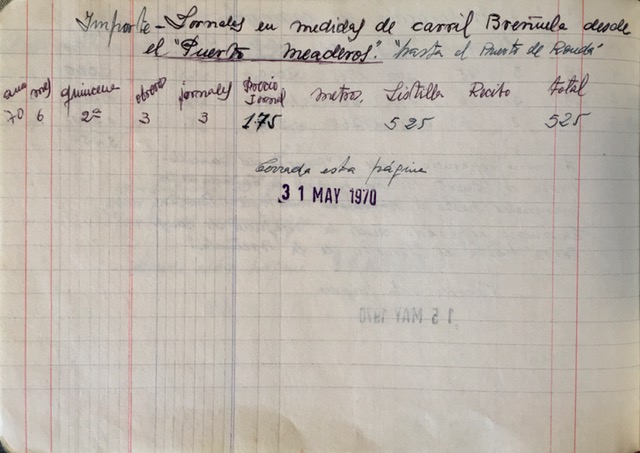 Importe - Jornales en medidas de carril Breñuela desde
el "Puerto Meaderos". "hasta el Puerto de Ronda"
año mes quincena obreros jornales Precio Jornal metros. Listilla Recibo total
70 6 2ª 3 3 175 525 525
Cerrada esta página
31 MAY 1970
15 MAY 1970